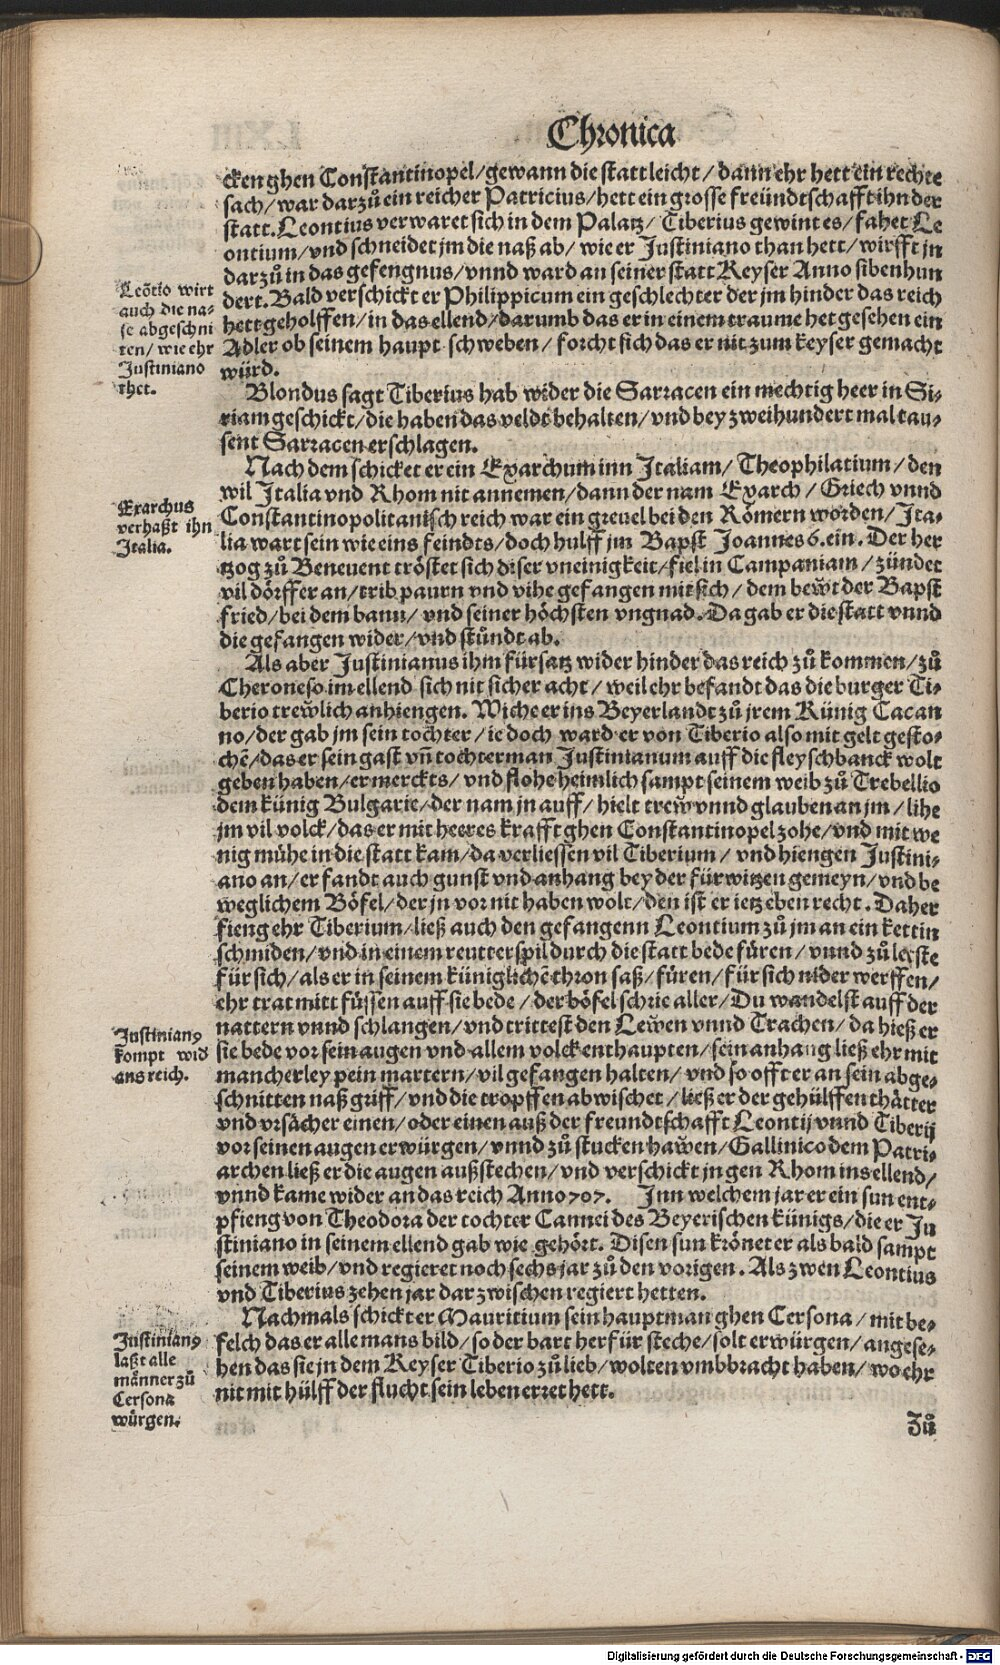 Chronica
cken ghen Constantinopel/gewann die statt leicht/dann ehr hett ein rechte
sach/war darzů ein reicher Patricius/hett ein grosse freündtschafft ihn der
statt. Leontius verwaret sich in dem Palatz/Tiberius gewint es/fahet Le
ontium/vnd schneidet jm die naß ab/wie er Justiniano than hett/wirfft jn
darzů in das gefengnus/vnnd ward an seiner statt Keyser Anno sibenhun
dert. Bald verschickt er Philippicum ein geschlechter der jm hinder das reich
hett geholffen/in das ellend/darumb das er in einem traume het gesehen ein
Adler ob seinem haupt schweben/forcht sich das er nit zum keyser gemacht
würd.
Leõtio wirt
auch die na⸗
se abgeschni
ten/wie ehr
Justiniano
thet.
Blondus sagt Tiberius hab wider die Sarracen ein mechtig heer in Si⸗
riam geschickt/die haben das veldt behalten/vnd bey zweihundert mal tau⸗
sent Sarracen erschlagen.
Nach dem schicket er ein Exarchum inn Italiam/Theophilatium/den
wil Italia vnd Rhom nit annemen/dann der nam Exarch/Griech vnnd
Constantinopolitanisch reich war ein grewel bei den Römern worden/Ita⸗
lia wart sein wie eins feindts/doch hulff jm Bapst Joannes 6. ein. Der her
tzog zů Beneuent tröstet sich diser vneinigkeit/fiel in Campaniam/zündet
vil dörffer an/trib paurn vnd vihe gefangen mit sich/dem bewt der Bapst
fried/bei dem bann/vnd seiner höchsten vngnad. Da gab er die statt vnnd
die gefangen wider/vnd stůndt ab.
Exarchus
verhaßt ihn
Italia.
Als aber Justinianus ihm fürsatz wider hinder das reich zů kommen/zů
Cheroneso im ellend sich nit sicher acht/weil ehr befandt das die burger Ti⸗
berio trewlich anhiengen. Wiche er ins Beyerlandt zů jrem Künig Cacan
no/der gab jm sein tochter/ie doch ward er von Tiberio also mit gelt gesto⸗
chẽ/das er sein gast vñ tochterman Justinianum auff die fleyschbanck wolt
geben haben/er merckts/vnd flohe heimlich sampt seinem weib zů Trebellio
dem künig Bulgarie/der nam jn auff/hielt trew vnnd glauben an jm/lihe
jm vil volck/das er mit heeres krafft ghen Constantinopel zohe/vnd mit we
nig mühe in die statt kam/da verliessen vil Tiberium/vnd hiengen Justini⸗
ano an/er fandt auch gunst vnd anhang bey der fürwitzen gemeyn/vnd be
weglichem Böfel/der jn vor nit haben wolt/den ist er ietz eben recht. Daher
fieng ehr Tiberium/ließ auch den gefangenn Leontium zů jm an ein kettin
schmiden/vnd in einem reutterspil durch die statt bede füren/vnnd zů letste
für sich/als er in seinem küniglichẽ thron saß/füren/für sich nider werffen/
ehr trat mitt füssen auff sie bede/der böfel schrie aller/Du wandelst auff der
nattern vnnd schlangen/vnd trittest den Lewen vnnd Trachen/da hieß er
sie bede vor sein augen vnd allem volck enthaupten/sein anhang ließ ehr mit
mancherley pein martern/vil gefangen halten/vnd so offt er an sein abge⸗
schnitten naß griff/vnd die tropffen abwischet/ließ er der gehülffen thätter
vnd vrsächer einen/oder einen auß der freundtschafft Leontij vnnd Tiberij
vor seinen augen erwürgen/vnnd zů stucken hawen/Gallinico dem Patri⸗
archen ließ er die augen außstechen/vnd verschickt jn gen Rhom ins ellend/
vnnd kame wider an das reich Anno 707. Inn welchem jar er ein sun ent⸗
pfieng von Theodora der tochter Cannei des Beyerischen künigs/die er Ju
stiniano in seinem ellend gab wie gehört. Disen sun krönet er als bald sampt
seinem weib/vnd regieret noch sechs jar zů den vorigen. Als zwen Leontius
vnd Tiberius zehen jar darzwischen regiert hetten.
Justinianꝰ
kompt wid
ans reich.
Nachmals schickt er Mauritium sein hauptman ghen Cersona/mit be⸗
felch das er alle mans bild/so der bart herfür steche/solt erwürgen/angese⸗
hen das sie jn dem Keyser Tiberio zů lieb/wolten vmbbracht haben/wo ehr
nit mit hülff der flucht sein leben erret hett.
Justinianꝰ
laßt alle
männer zů
Cersona
würgen.
Zů
Digitalisierung gefördert durch die Deutsche Forschungsgemeinschaft - DFG